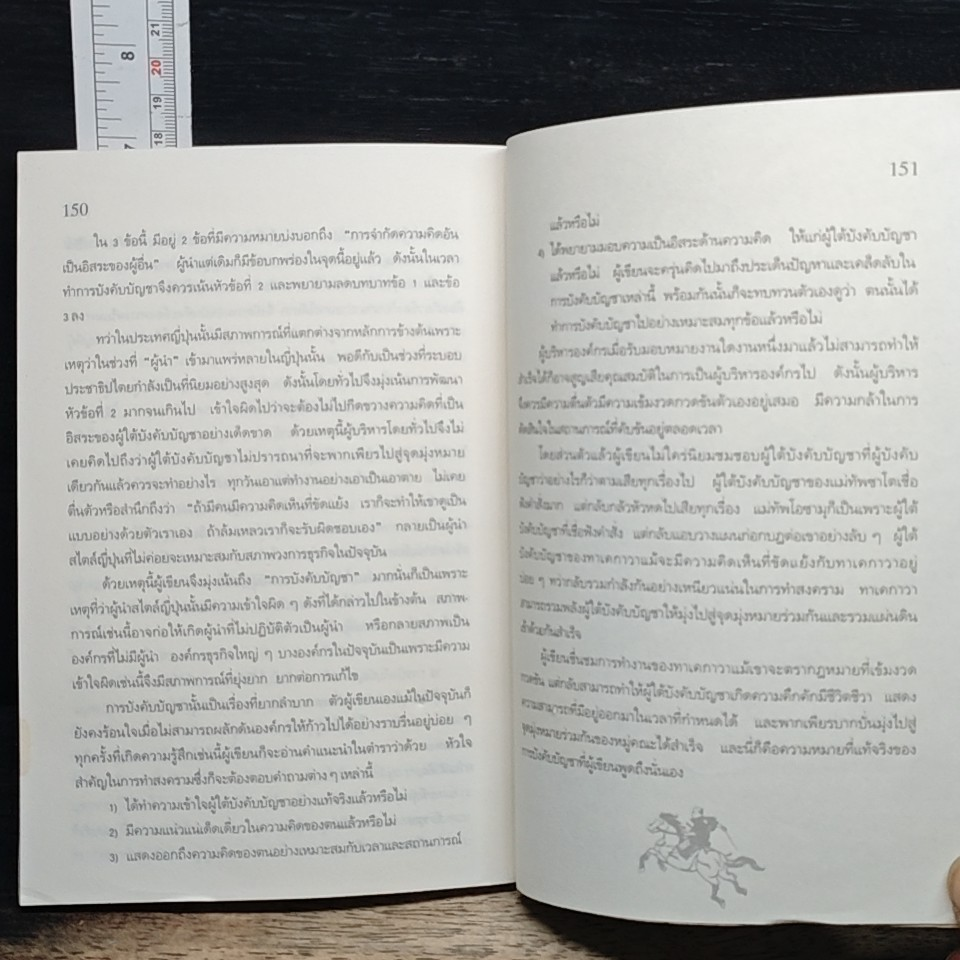 8
7
21
20
19
18
150
ใน 3 ข้อนี้ มีอยู่ 2 ข้อที่มีความหมายบ่งบอกถึง "การจำกัดความคิดอัน
เป็นอิสระของผู้อื่น" ผู้นำแต่เดิมก็มีข้อบกพร่องในจุดนี้อยู่แล้ว ดังนั้นในเวลา
ทำการบังคับบัญชาจึงควรเน้นหัวข้อที่ 2 และพยายามลดบทบาทข้อ 1 และข้อ
3 ลง
ทว่าในประเทศญี่ปุ่นนั้นมีสภาพการณ์ที่แตกต่างจากหลักการข้างต้นเพราะ
เหตุว่าในช่วงที่ "ผู้นำ" เข้ามาแพร่หลายในญี่ปุ่นนั้น พอดีกับเป็นช่วงที่ระบอบ
ประชาธิปไตยกำลังเป็นที่นิยมอย่างสูงสุด ดังนั้นโดยทั่วไปจึงมุ่งเน้นการพัฒนา
หัวข้อที่ 2 มากจนเกินไป เข้าใจผิดไปว่าจะต้องไม่ไปกีดขวางความคิดที่เป็น
อิสระของผู้ใต้บังคับบัญชาอย่างเด็ดขาด ด้วยเหตุนี้ผู้บริหารโดยทั่วไปจึงไม่
เคยคิดไปถึงว่าผู้ใต้บังคับบัญชาไม่ปรารถนาที่จะพากเพียรไปสู่จุดมุ่งหมาย
เดียวกันแล้วควรจะทำอย่างไร ทุกวันเอาแต่ทำงานอย่างเอาเป็นเอาตาย ไม่เคย
ตื่นตัวหรือสำนึกถึงว่า "ถ้ามีคนมีความคิดเห็นที่ขัดแย้ง เราก็จะทำให้เขาดูเป็น
แบบอย่างด้วยตัวเราเอง ถ้าล้มเหลวเราก็จะรับผิดชอบเอง" กลายเป็นผู้นำ
สไตล์ญี่ปุ่นที่ไม่ค่อยจะเหมาะสมกับสภาพวงการธุรกิจในปัจจุบัน
ด้วยเหตุนี้ผู้เขียนจึงมุ่งเน้นถึง "การบังคับบัญชา" มากนั่นก็เป็นเพราะ
เหตุที่ว่าผู้นำสไตล์ญี่ปุ่นนั้นมีความเข้าใจผิด ๆ ดังที่ได้กล่าวไปในข้างต้น สภาพ-
การณ์เช่นนี้อาจก่อให้เกิดผู้นำที่ไม่ปฏิบัติตัวเป็นผู้นำ หรือกลายสภาพเป็น
องค์กรที่ไม่มีผู้นำ องค์กรธุรกิจใหญ่ ๆ บางองค์กรในปัจจุบันเป็นเพราะมีความ
เข้าใจผิดเช่นนี้จึงมีสภาพการณ์ที่ยุ่งยาก ยากต่อการแก้ไข
การบังคับบัญชานั้นเป็นเรื่องที่ยากลำบาก ตัวผู้เขียนเองแม้ในปัจจุบันก็
ยังคงร้อนใจเมื่อไม่สามารถผลักดันองค์กรให้ก้าวไปได้อย่างราบรื่นอยู่บ่อย ๆ
ทุกครั้งที่เกิดความรู้สึกเช่นนี้ผู้เขียนก็จะอ่านคำแนะนำในตำราว่าด้วย หัวใจ
สำคัญในการทำสงครามซึ่งก็จะต้องตอบคำถามต่าง ๆ เหล่านี้
1) ได้ทำความเข้าใจผู้ใต้บังคับบัญชาอย่างแท้จริงแล้วหรือไม่
2) มีความแน่วแน่เด็ดเดี่ยวในความคิดของตนแล้วหรือไม่
3) แสดงออกถึงความคิดของตนอย่างเหมาะสมกับเวลาและสถานการณ์
151
แล้วหรือไม่
4) ได้พยายามมอบความเป็นอิสระด้านความคิด ให้แก่ผู้ใต้บังคับบัญชา
แล้วหรือไม่ ผู้เขียนจะครุ่นคิดไปมาถึงประเด็นปัญหาและเคล็ดลับใน
การบังคับบัญชาเหล่านี้ พร้อมกันนั้นก็จะทบทวนตัวเองดูว่า ตนนั้นได้
ทำการบังคับบัญชาไปอย่างเหมาะสมทุกข้อแล้วหรือไม่
ผู้บริหารองค์กรเมื่อรับมอบหมายงานใดงานหนึ่งมาแล้วไม่สามารถทำให้
สำเร็จได้ก็อาจสูญเสียคุณสมบัติในการเป็นผู้บริหารองค์กรไป ดังนั้นผู้บริหาร
จึงควรมีความตื่นตัวมีความเข้มงวดกวดขันตัวเองอยู่เสมอ มีความกล้าในการ
ตัดสินใจในสถานการณ์ที่คับขันอยู่ตลอดเวลา
โดยส่วนตัวแล้วผู้เขียนไม่ใคร่นิยมชมชอบผู้ใต้บังคับบัญชาที่ผู้บังคับ
บัญชาว่าอย่างไรก็ว่าตามเสียทุกเรื่องไป ผู้ใต้บังคับบัญชาของแม่ทัพซาโตเชื่อ
ฟังคำสั่งมาก แต่กลับกลัวหัวหดไปเสียทุกเรื่อง แม่ทัพโอซามุก็เป็นเพราะผู้ใต้
บังคับบัญชาที่เชื่อฟังคำสั่ง แต่กลับแอบวางแผนก่อกบฏต่อเขาอย่างลับ ๆ ผู้ใต้
บังคับบัญชาของทาเคกาวาแม้จะมีความคิดเห็นที่ขัดแย้งกับทาเคกาวาอยู่
บ่อย ๆ ทว่ากลับรวมกำลังกันอย่างเหนียวแน่นในการทำสงคราม ทาเคกาวา
สามารถรวมพลังผู้ใต้บังคับบัญชาให้มุ่งไปสู่จุดมุ่งหมายร่วมกันและรวมแผ่นดิน
ล้ำด้วยกันสำเร็จ
ผู้เขียนชื่นชมการทำงานของทาเคกาวาแม้เขาจะตรากฎหมายที่เข้มงวด
กวดขัน แต่กลับสามารถทำให้ผู้ใต้บังคับบัญชาเกิดความคึกคักมีชีวิตชีวา แสดง
ความสามารถที่มีอยู่ออกมาในเวลาที่กำหนดได้ และพากเพียรบากบั่นมุ่งไปสู่
จุดมุ่งหมายร่วมกันของหมู่คณะได้สำเร็จ และนี่ก็คือความหมายที่แท้จริงของ
การบังคับบัญชาที่ผู้เขียนพูดถึงนั่นเอง